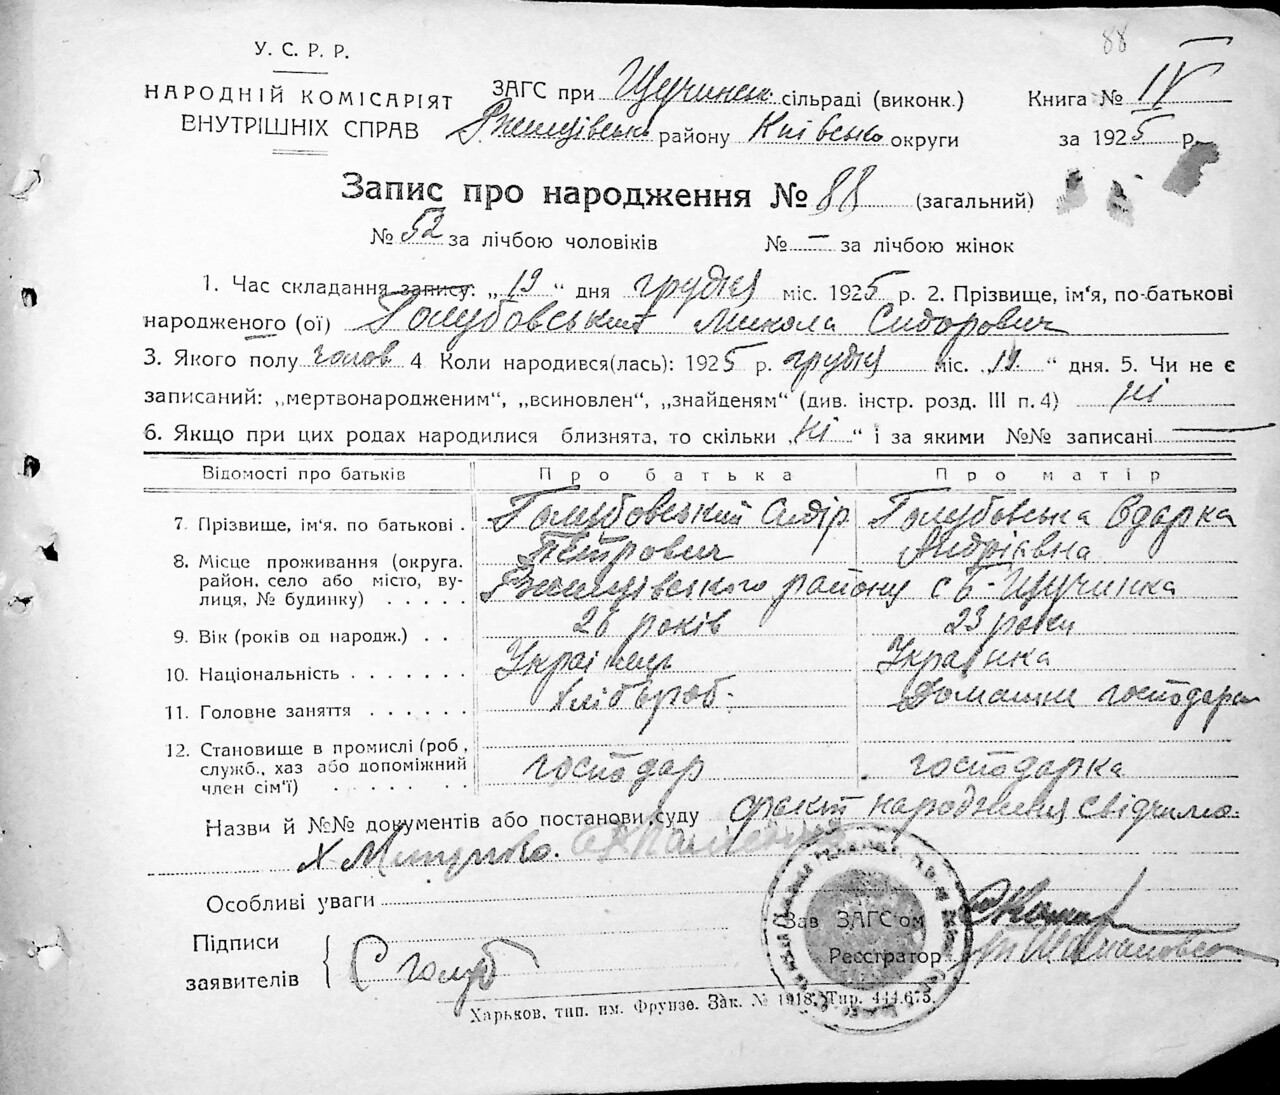 88
У. С. Р. Р.
НАРОДНІЙ КОМІСАРІЯТ
ВНУТРІШНІХ СПРАВ
ЗАГС при Щучинськ. сільраді (виконк.)
Ржищівсько району Київсько округи
Книга № IV
за 1925 р.
Запис про народження № 88 (загальний)
№ 52 за лічбою чоловіків № — за лічбою жінок
1. Час складання запису: „19“ дня грудня міс. 1925 р. 2. Прізвище, ім'я, по-батькові
народженого (ої) Голубовський Микола Сидорович
3. Якого полу чолов 4 Коли народився(лась): 1925 р. грудня міс. „19.“ дня. 5. Чи не є
записаний: „мертвонародженим“, „всиновлен“, „знайденям“ (див. інстр. розд. III п. 4) Ні
6. Якщо при цих родах народилися близнята, то скільки „Ні“ і за якими №№ записані —
Відомості про батьків Про батька Про матір
7. Прізвище, ім'я. по батькові . Голубовський Сидір Голубовська Одарка
Петрович Андріївна
8. Місце проживання (округа. район, село або місто, вулиця, № будинку) . . . . . Ржищівського району с Б-Щучинка
9. Вік (років од народж.) . . 26 років 23 роки
10. Національность . . . . . . . Українець Українка
11. Головне заняття . . . . . . Хлібороб. Домашня господарка
12. Становище в промислі (роб, служб., хаз або допоміжний член сім'ї) . . . . . господар господарка
Назви й №№ документів або постанови суду факт народження свідчимо.
Х
Особливі уваги
Підписи
заявителів
С голуб
Зав ЗАГС'ом
Реєстратор
Харьков, тип. им. Фрунзе. Зак. № 1918. Тир. 444.675.